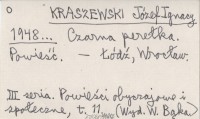 O
KRASZEWSKI Józef Ignacy
1948... Czarna perełka.
Powieść. – Łódź, Wrocław.
III seria. Powieści obyczajowe i
społeczne, t. 11. (Wyd. W. Bąka)